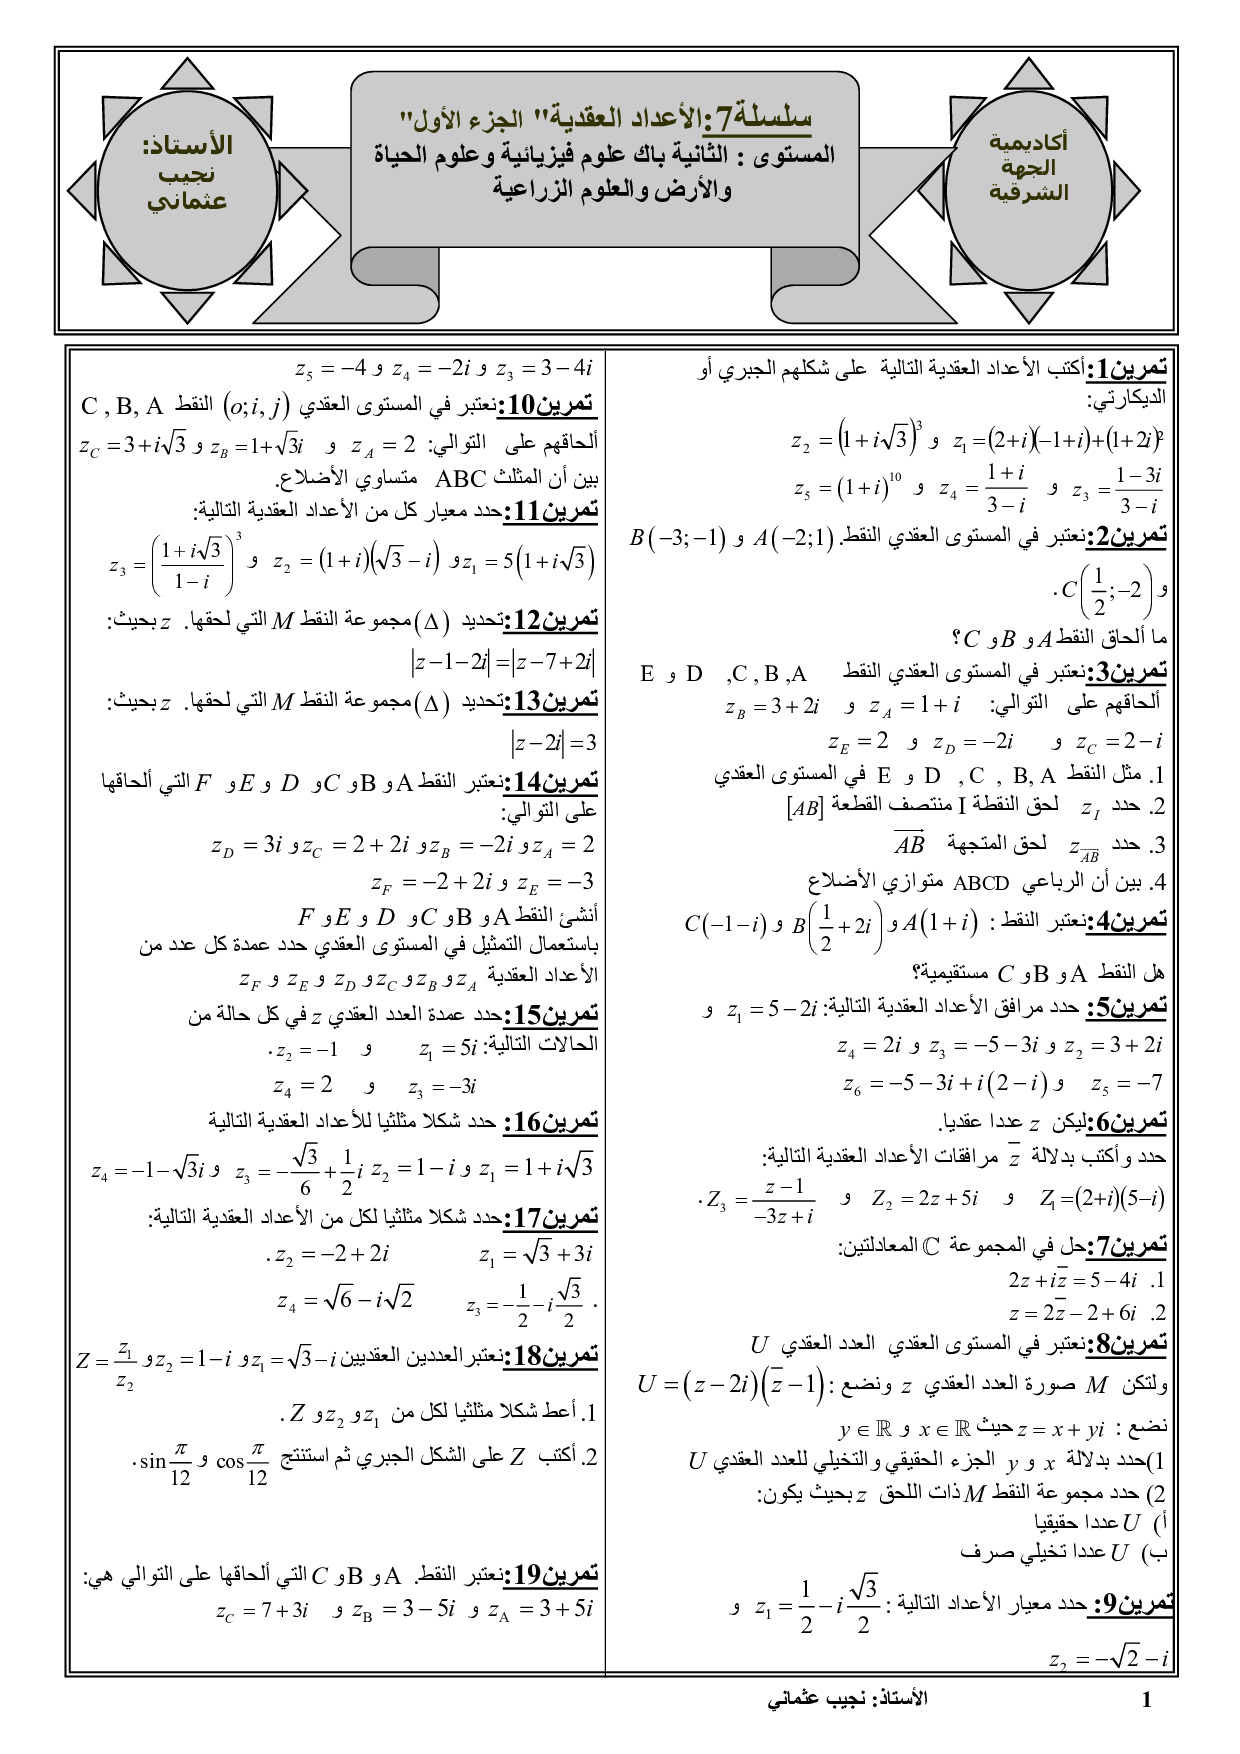 أكاديمية
الجهة
الشرقية
سلسلة7:الأعداد العقدية" الجزء الأول"
المستوى : الثانية باك علوم فيزيائية وعلوم الحياة
والأرض والعلوم الزراعية
الأستاذ:
نجيب
عثماني
تمرين1:أكتب الأعداد العقدية التالية على شكلهم الجبري أو
الديكارتي:
z₁=(2+i)(−1+i)+(1+2i)² و z₂=(1+i√3)³
z₃=(1−3i)/(3−i) و z₄=(1+i)/(3−i) و z₅=(1+i)¹⁰
تمرين2:نعتبر في المستوى العقدي النقط. A(−2;1) و B(−3;−1)
و C(1/2;−2).
ما ألحاق النقط A و B و C ؟
تمرين3:نعتبر في المستوى العقدي النقط A, B , C, D و E
ألحاقهم على التوالي: z_A=1+i و z_B=3+2i
z_C=2−i و z_D=−2i و z_E=2
1. مثل النقط A ,B , C , D و E في المستوى العقدي
2. حدد z_I لحق النقطة I منتصف القطعة [AB]
3. حدد z_{\overrightarrow{AB}} لحق المتجهة \overrightarrow{AB}
4. بين أن الرباعي ABCD متوازي الأضلاع
تمرين4:نعتبر النقط : A(1+i) و B(1/2+2i) و C(−1−i)
هل النقط A و B و C مستقيمية؟
تمرين5: حدد مرافق الأعداد العقدية التالية: z₁=5−2i و
z₂=3+2i و z₃=−5−3i و z₄=2i
z₅=−7 و z₆=−5−3i+i(2−i)
تمرين6:ليكن z عددا عقديا.
حدد وأكتب بدلالة z̄ مرافقات الأعداد العقدية التالية:
Z₁=(2+i)(5−i) و Z₂=2z+5i و Z₃=(z−1)/(−3z+i) .
تمرين7:حل في المجموعة ℂ المعادلتين:
1. 2z+iz̄=5−4i
2. z=2z̄−2+6i
تمرين8:نعتبر في المستوى العقدي العدد العقدي U
ولتكن M صورة العدد العقدي z ونضع : U=(z−2i)(z̄−1)
نضع : z=x+yi حيث x∈ℝ و y∈ℝ
1)حدد بدلالة x و y الجزء الحقيقي والتخيلي للعدد العقدي U
2) حدد مجموعة النقط M ذات اللحق z بحيث يكون:
أ) U عددا حقيقيا
ب) U عددا تخيلي صرف
تمرين9: حدد معيار الأعداد التالية : z₁=1/2−i√3/2 و
z₂=−√2−i
z₃=3−4i و z₄=−2i و z₅=−4
تمرين10:نعتبر في المستوى العقدي (o;i,j) النقط C , B, A
ألحاقهم على التوالي: z_A=2 و z_B=1+√3i و z_C=3+i√3
بين أن المثلث ABC متساوي الأضلاع.
تمرين11:حدد معيار كل من الأعداد العقدية التالية:
z₁=5(1+i√3) و z₂=(1+i)(√3−i) و z₃=((1+i√3)/(1−i))³
تمرين12:تحديد (Δ) مجموعة النقط M التي لحقها. z بحيث:
|z−1−2i|=|z−7+2i|
تمرين13:تحديد (Δ) مجموعة النقط M التي لحقها. z بحيث:
|z−2i|=3
تمرين14:نعتبر النقط A و B و C و D و E و F التي ألحاقها
على التوالي:
z_A=2 و z_B=−2i و z_C=2+2i و z_D=3i
z_E=−3 و z_F=−2+2i
أنشئ النقط A و B و C و D و E و F
باستعمال التمثيل في المستوى العقدي حدد عمدة كل عدد من
الأعداد العقدية z_A و z_B و z_C و z_D و z_E و z_F
تمرين15:حدد عمدة العدد العقدي z في كل حالة من
الحالات التالية: z₁=5i و z₂=−1 .
z₃=−3i و z₄=2
تمرين16: حدد شكلا مثلثيا للأعداد العقدية التالية
z₁=1+i√3 و z₂=1−i z₃=−√3/6+1/2i و z₄=−1−√3i
تمرين17:حدد شكلا مثلثيا لكل من الأعداد العقدية التالية:
z₁=√3+3i z₂=−2+2i .
. z₃=−1/2−i√3/2 z₄=√6−i√2
تمرين18:نعتبرالعددين العقديين z₁=√3−i و z₂=1−i و Z=z₁/z₂
1. أعط شكلا مثلثيا لكل من z₁ و z₂ و Z .
2. أكتب Z على الشكل الجبري ثم استنتج cos π/12 و sin π/12 .
تمرين19:نعتبر النقط. A و B و C التي ألحاقها على التوالي هي:
z_A=3+5i و z_B=3−5i و z_C=7+3i
1
الأستاذ: نجيب عثماني